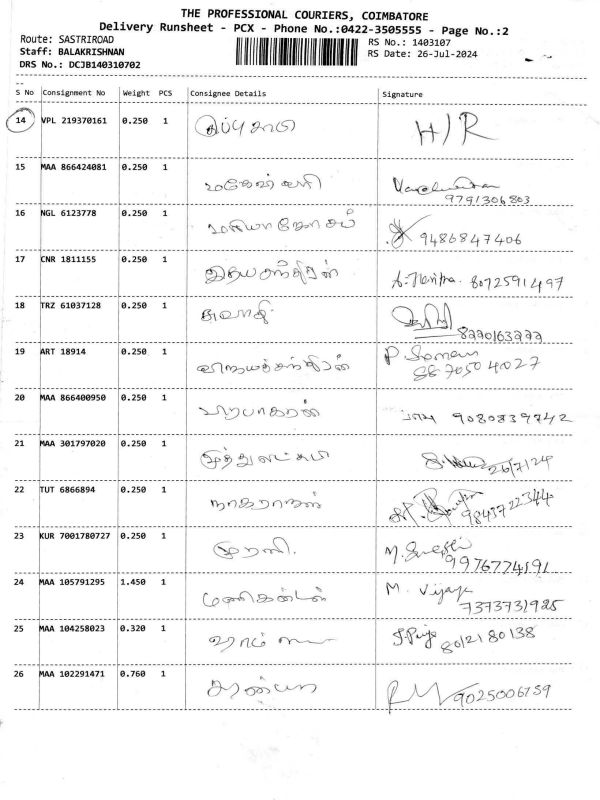 THE PROFESSIONAL COURIERS, COIMBATORE
Delivery Runsheet - PCX - Phone No.:0422-3505555 - Page No.:2
Route: SASTRIROAD
RS No.: 1403107
Staff: BALAKRISHNAN
RS Date: 26-Jul-2024
DRS No.: DCJB140310702
S No Consignment No Weight PCS Consignee Details Signature
14 VPL 219370161 0.250 1 H/R
15 MAA 866424081 0.250 1 மகேஸ்வரி
9791306803
16 NGL 6123778 0.250 1 மரியாஜோசப் 9486847406
17 CNR 1811155 0.250 1 இதயசந்திரன் 8072591497
18 TRZ 61037128 0.250 1 சுவாதி
8220163222
19 ART 18914 0.250 1 P. Soman
88 70504027
20 MAA 866400950 0.250 1 பிரபாகரன் 9080839742
21 MAA 301797020 0.250 1 முத்துலட்சுமி 26/7/24
22 TUT 6866894 0.250 1 நாகராஜன்
9843722344
23 KUR 7001780727 0.250 1 முரளி.
9976774191
24 MAA 105791295 1.450 1 மணிகண்டன் M. Vijay
7373731925
25 MAA 104258023 0.320 1 J.Priya 80121 80138
26 MAA 102291471 0.760 1 சரண்யா 9025006759